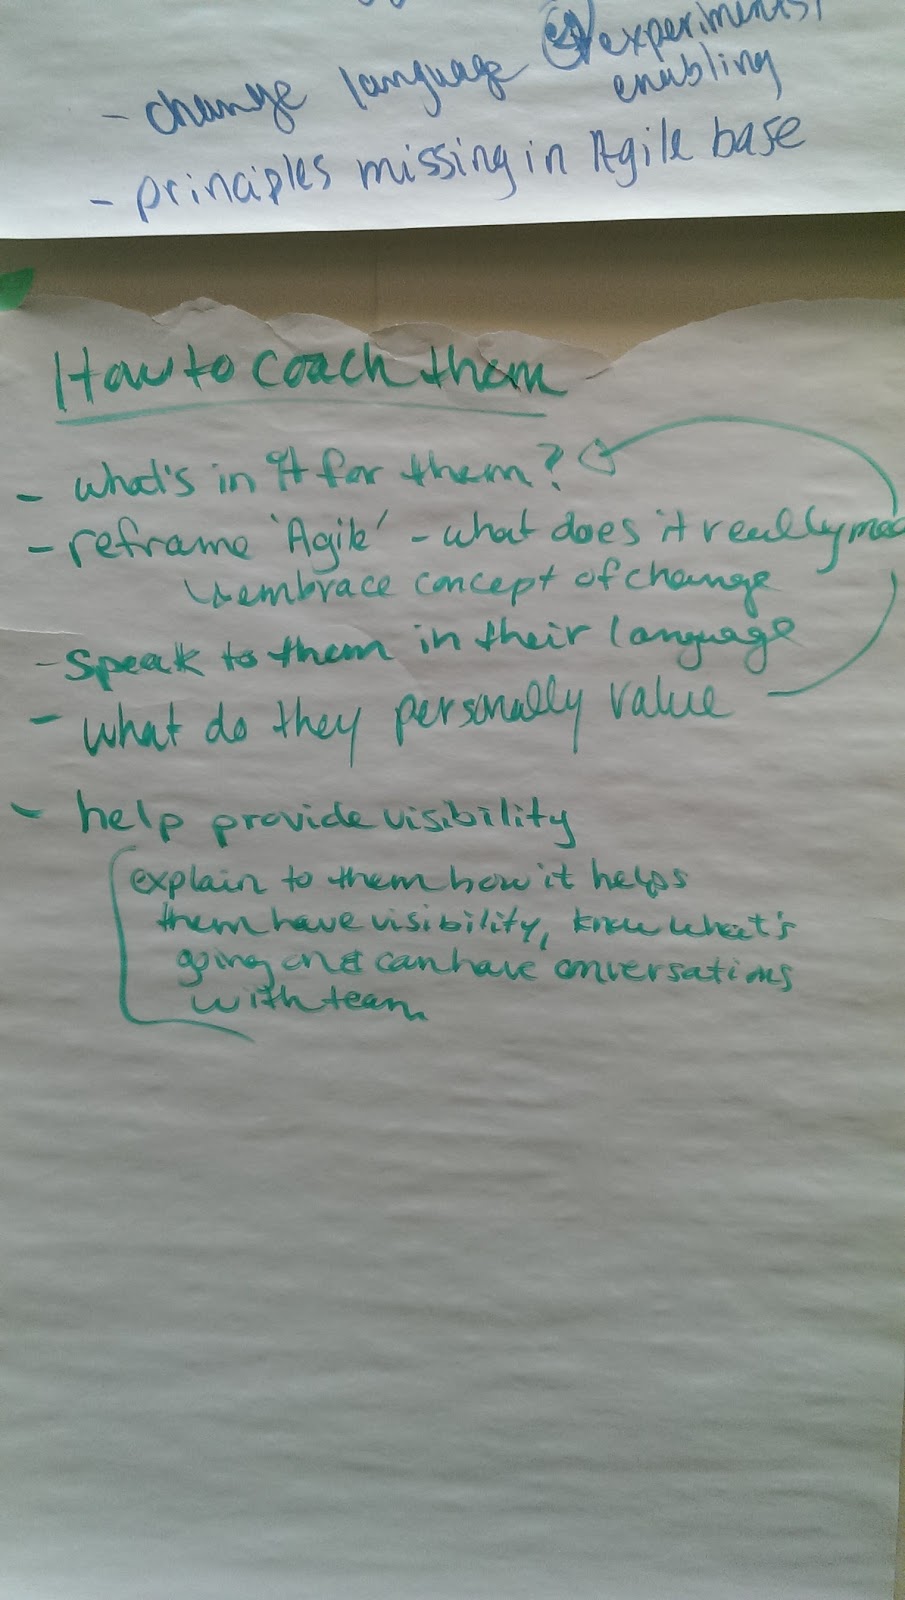 - change language experiments,
enabling
- principles missing in Agile base
How to coach them
- what's in it for them?
- reframe 'Agile' - what does it really
↳ embrace concept of change
- Speak to them in their language
- what do they personally value
- help provide visibility
explain to them how it helps
them have visibility, know what's
going on & can have conversations
with team